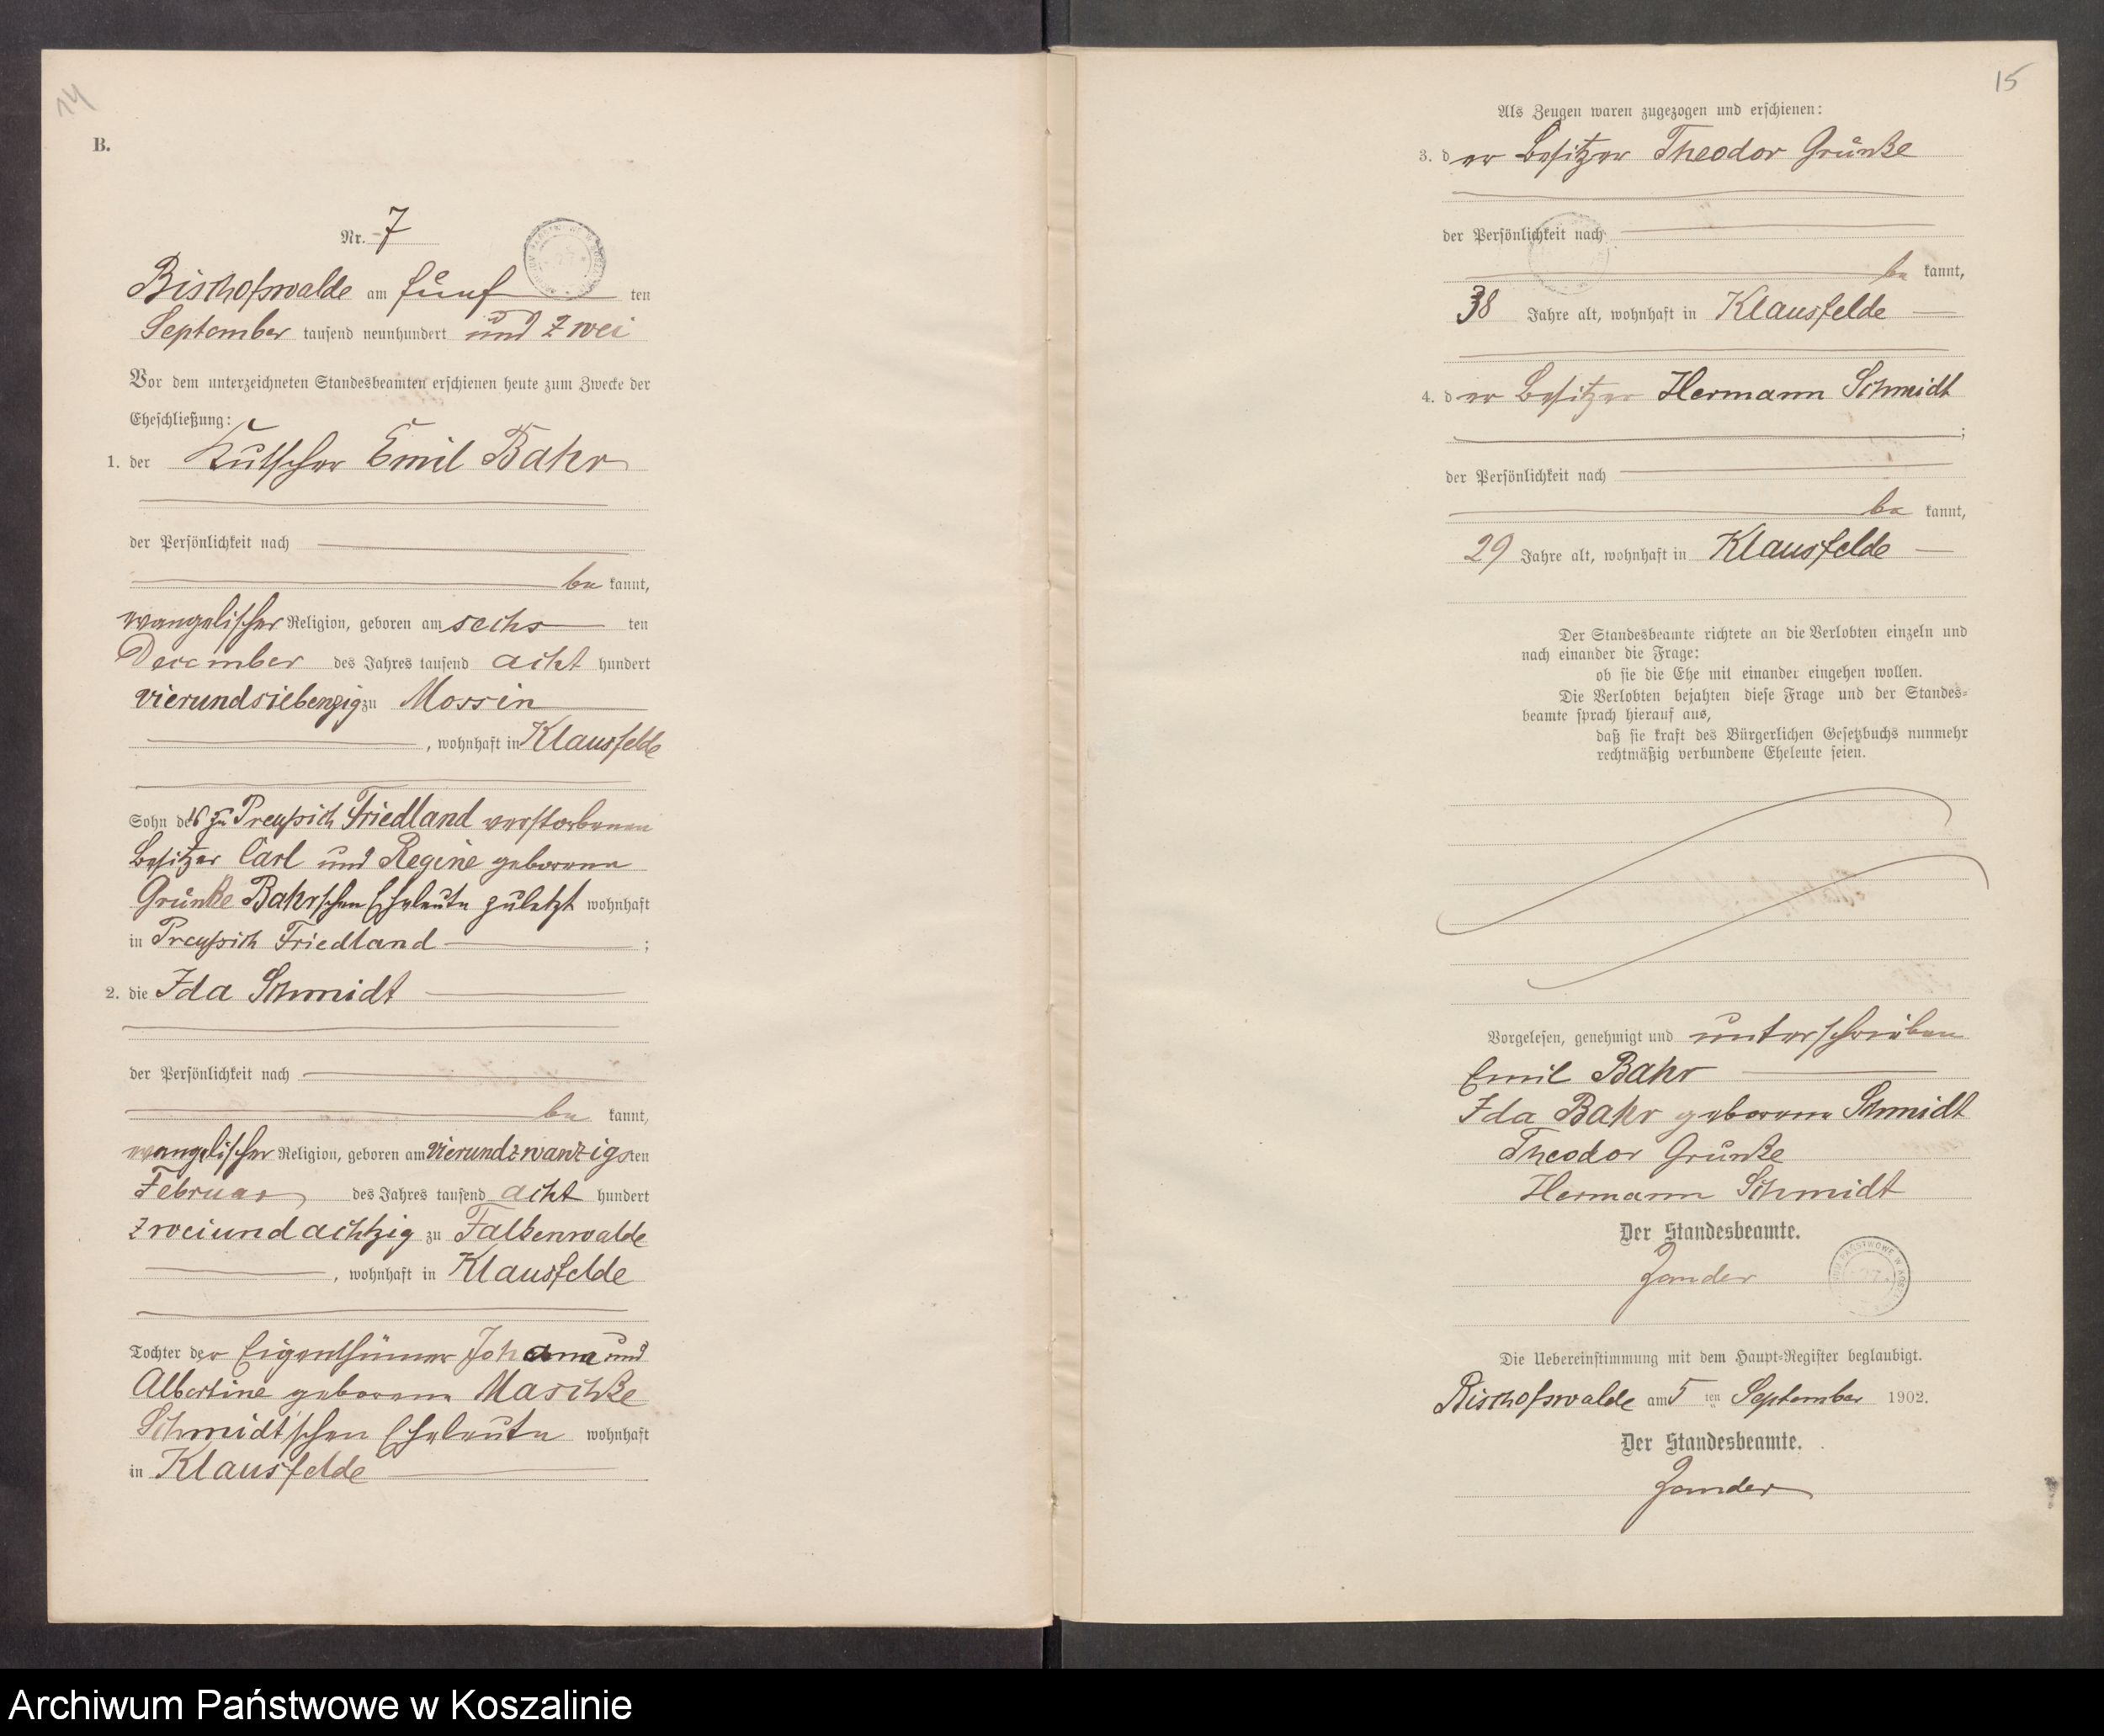 14
B.
Nr. 7
Bischofswalde am fünf ten
September tausend neunhundert und zwei
Vor dem unterzeichneten Standesbeamten erschienen heute zum Zwecke der
Eheschließung:
1. der Kutscher Emil Bahr
der Persönlichkeit nach
be kannt,
evangelischer Religion, geboren am sechs ten
December des Jahres tausend acht hundert
vierundsiebenzig zu Mossin
, wohnhaft in Klausfelde
Sohn des zu Preußich Friedland verstorbenen
Besitzer Carl und Regine geborene
Grünke Bahrschen Eheleute zuletzt wohnhaft
in Preußich Friedland ;
2. die Ida Schmidt
der Persönlichkeit nach
be kannt,
evangelischer Religion, geboren am vierundzwanzigsten
Februar des Jahres tausend acht hundert
zweiundachtzig zu Falkenwalde
, wohnhaft in Klausfelde
Tochter der Eigenthümer Johann und
Albertine geborene Maschke
Schmidt'schen Eheleute wohnhaft
in Klausfelde
15
Als Zeugen waren zugezogen und erschienen:
3. der Besitzer Theodor Grünke
der Persönlichkeit nach
be kannt,
38 Jahre alt, wohnhaft in Klausfelde
4. der Besitzer Hermann Schmidt
;
der Persönlichkeit nach
be kannt,
29 Jahre alt, wohnhaft in Klausfelde
Der Standesbeamte richtete an die Verlobten einzeln und
nach einander die Frage:
ob sie die Ehe mit einander eingehen wollen.
Die Verlobten bejahten diese Frage und der Standes-
beamte sprach hierauf aus,
daß sie kraft des Bürgerlichen Gesetzbuchs nunmehr
rechtmäßig verbundene Eheleute seien.
Vorgelesen, genehmigt und unterschrieben
Emil Bahr
Ida Bahr geborene Schmidt
Theodor Grünke
Hermann Schmidt
Der Standesbeamte.
Zander
Die Uebereinstimmung mit dem Haupt-Register beglaubigt.
Bischofswalde am 5 ten September 1902.
Der Standesbeamte.
Zander
Archiwum Państwowe w Koszalinie